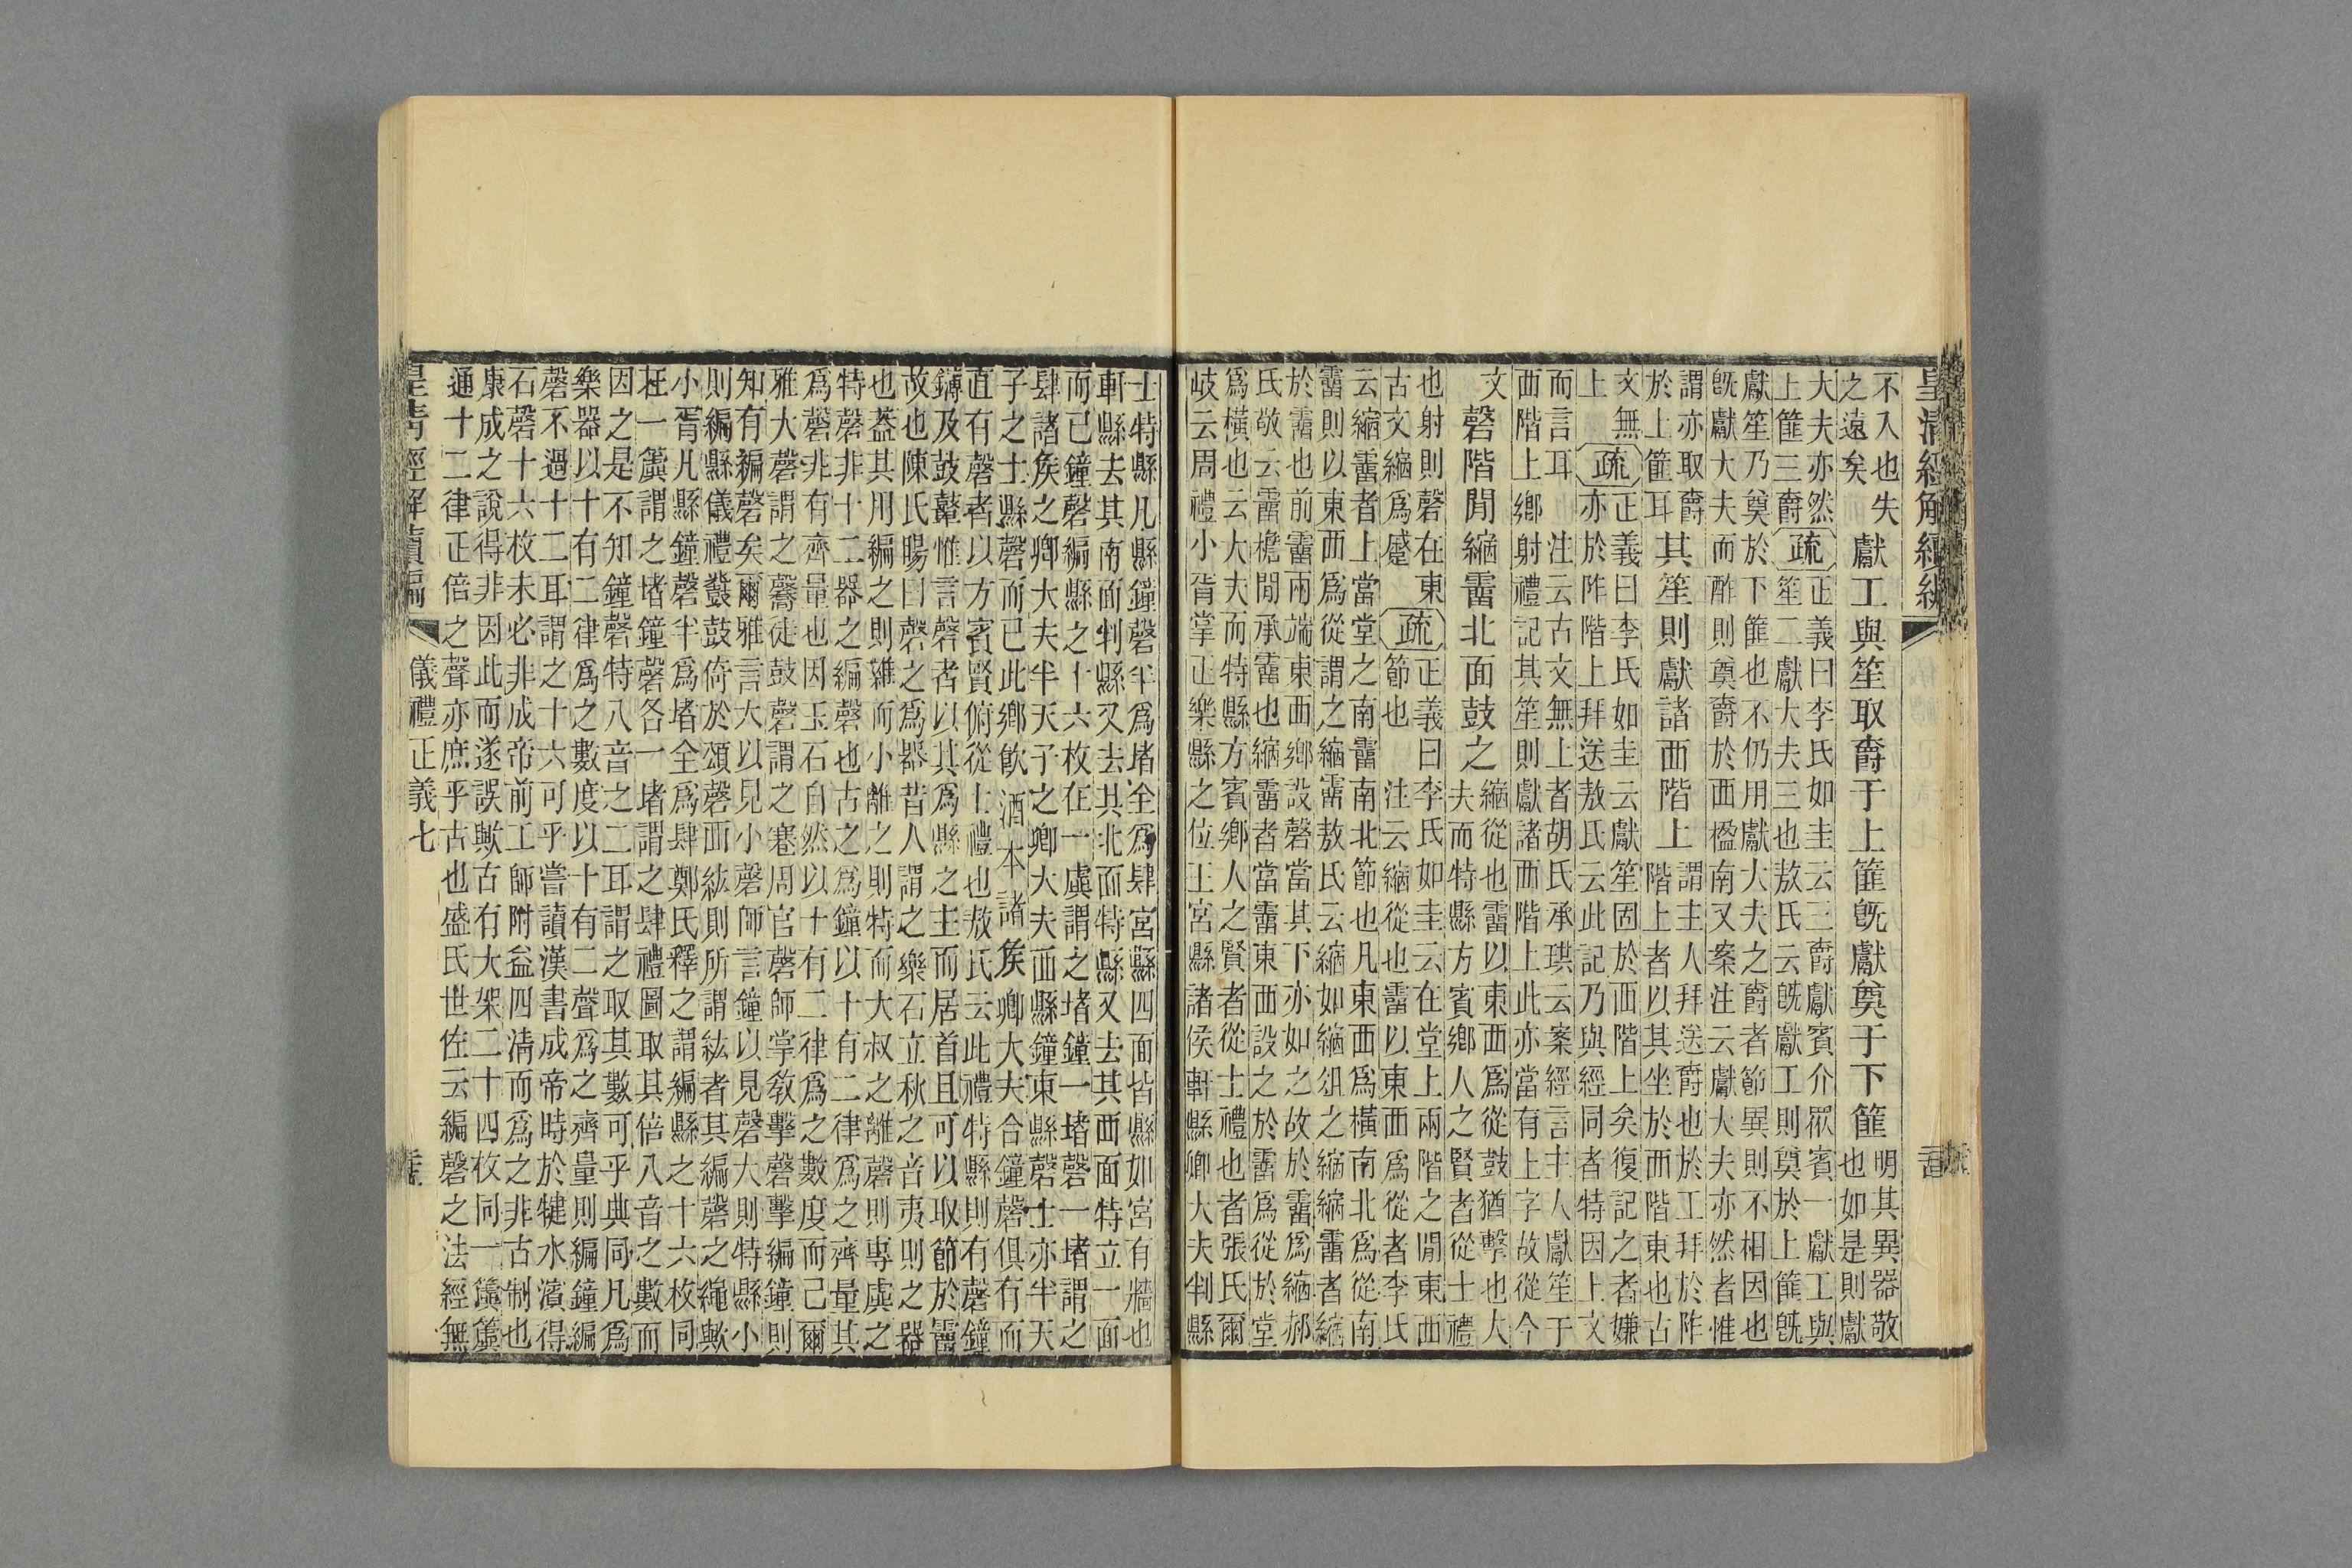 皇清經解續編
不入也失
之遠矣
獻工與笙取爵于上篚既獻奠于下篚
明其異器敬
也如是則獻
大夫亦然
上篚三爵
疏
正義曰李氏如圭云三爵獻賓介眾賓一獻工與
笙二獻大夫三也敖氏云既獻工則奠於上篚既
獻笙乃奠於下篚也不仍用獻大夫之爵者節異則不相因也
既獻大夫而酢則奠爵於西楹南又案注云獻大夫亦然者惟
謂亦取爵
於上篚耳
其笙則獻諸西階上
謂主人拜送爵也於工拜於阼
階上者以其坐於西階東也古
文無
上
疏
正義曰李氏如圭云獻笙固於西階上矣復記之者嫌
亦於阼階上拜送敖氏云此記乃與經同者特因上文
而言耳　注云古文無上者胡氏承珙云案經言主人獻笙于
西階上鄉射禮記其笙則獻諸西階上此亦當有上字故從今
文
磬階閒縮霤北面鼓之
縮從也霤以東西為從鼓猶擊也大
夫而特縣方賓鄉人之賢者從士禮
也射則磬在東
古文縮為蹙
疏
正義曰李氏如圭云在堂上兩階之閒東西
節也　注云縮從也霤以東西為從者李氏
云縮霤者上當堂之南霤南北節也凡東西為橫南北為從南
霤則以東西為從謂之縮霤敖氏云縮如縮俎之縮縮霤者縮
於霤也前霤兩端東西鄉設磬當其下亦如之故於霤為縮郝
氏敬云霤檐閒承霤也縮霤者當霤東西設之於霤為從於堂
為橫也云大夫而特縣方賓鄉人之賢者從士禮也者張氏爾
岐云周禮小胥掌正樂縣之位王宮縣諸侯軒縣卿大夫判縣
士特縣凡縣鐘磬半為堵全為肆宮縣四面皆縣如宮有牆也
軒縣去其南面判縣又去其北面特縣又去其西面特立一面
而已鐘磬編縣之十六枚在一虡謂之堵鐘一堵磬一堵謂之
肆諸矦之卿大夫半天子之卿大夫西縣鐘東縣磬士亦半天
子之士縣磬而已此鄉飲酒本諸矦卿大夫合鐘磬俱有而
直有磬者以方賓賢俯從士禮也敖氏云此禮特縣則有磬鐘
鎛及鼓鼙惟言磬者以其為縣之主而居首且可以取節於霤
故也陳氏暘曰磬之為器昔人謂之樂石立秋之音夷則之器
也蓋其用編之則雜而小離之則特而大叔之離磬則專虡之
特磬非十二器之編磬也古之為鐘以十有二律為之齊量其
為磬非有齊量也因玉石自然以十有二律為之數度而已爾
雅大磬謂之毊徒鼓磬謂之寋周官磬師掌教擊磬擊編鐘則
知有編磬矣爾雅言大以見小磬師言鐘以見磬大則特縣小
則編縣儀禮鼗鼓倚於頌磬西紘則所謂紘者其編磬之繩歟
小胥凡縣鐘磬半為堵全為肆鄭氏釋之謂編縣之十六枚同
在一簴謂之堵鐘磬各一堵謂之肆禮圖取其倍八音之數而
因之是不知鐘磬特八音之二耳謂之取其數可乎典同凡為
樂器以十有二律為之數度以十有二聲為之齊量則編鐘編
磬不過十二耳謂之十六可乎嘗讀漢書成帝時於犍水濱得
石磬十六枚未必非成帝前工師附益四清而為之非古制也
康成之說得非因此而遂誤歟古有大架二十四枚同一簨簴
通十二律正倍之聲亦庶乎古也盛氏世佐云編磬之法經無
皇清經解續編
儀禮正義七